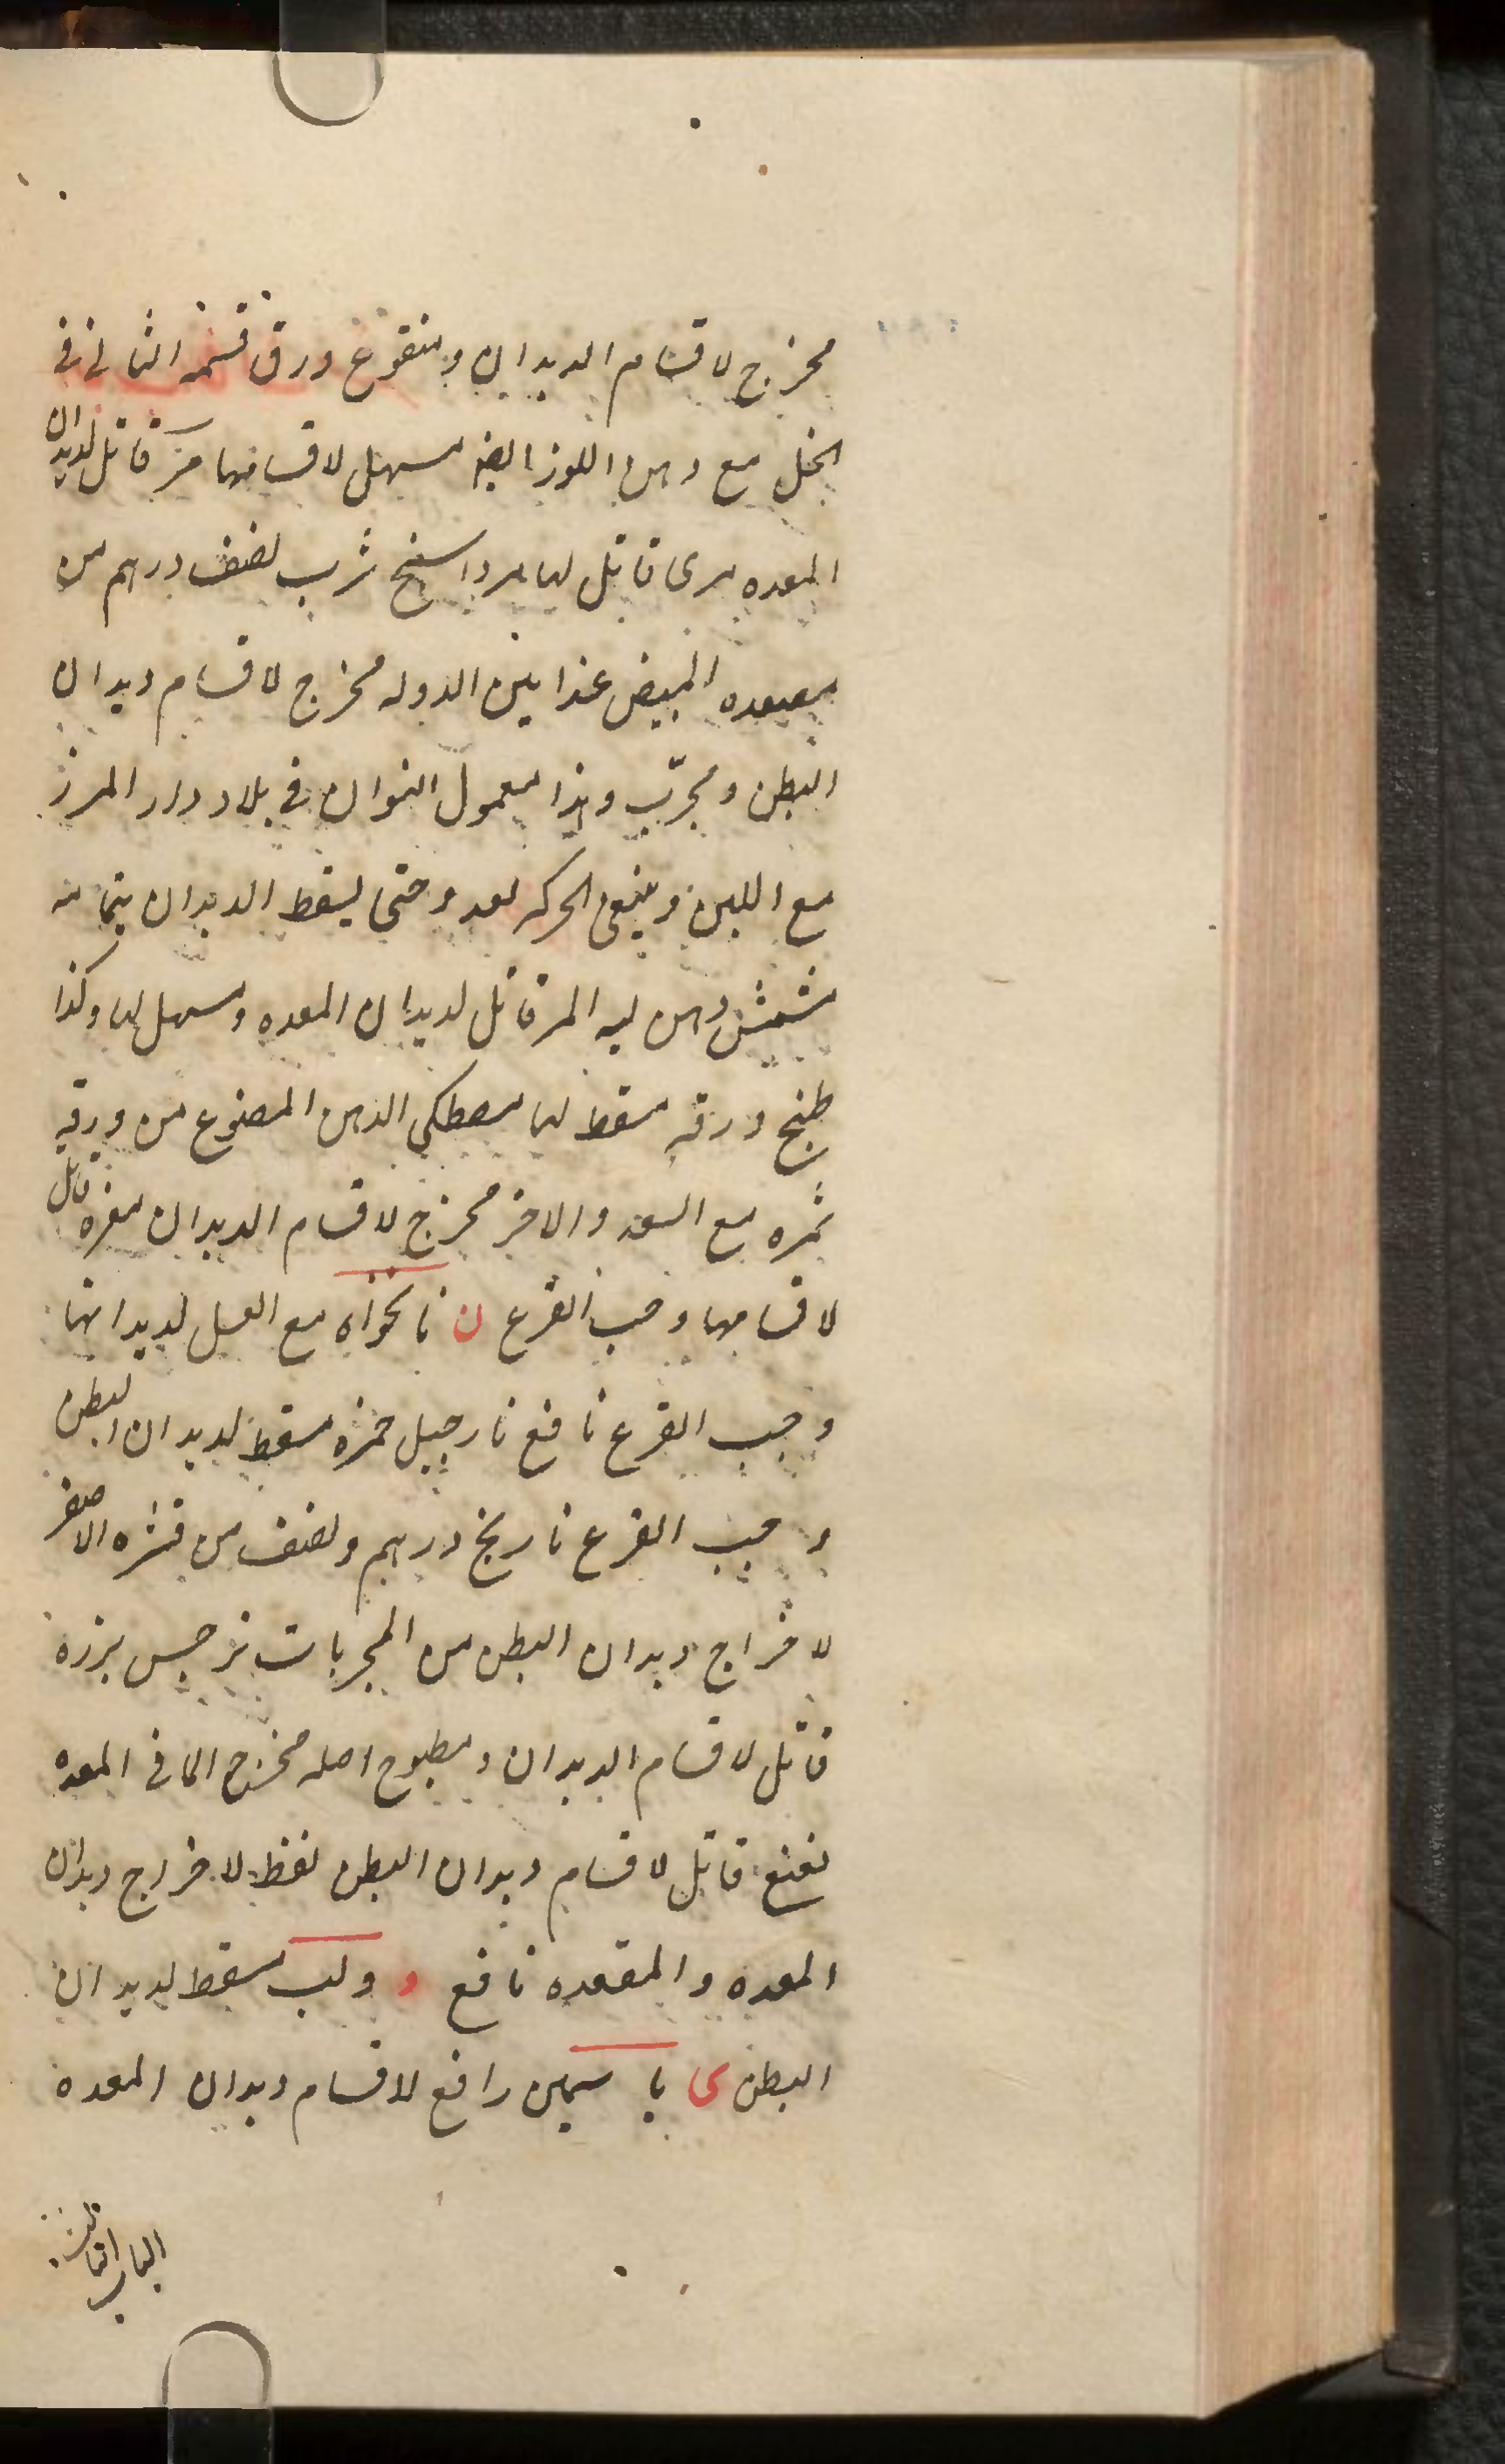 مخرج لاقسام الديدان ومنقوع ورق قسمه الثانى فى
الخل مع دهن اللوز ايضا مسهل لاقسامها مر قاتل لديدان
المعده مرى قاتل لها مرداسنج شرب نصف درهم من
المبيض عند الدوله مخرج لاقسام ديدان
البطن ومجرّب وهذا معمول النسوان فى بلاد دار المرز
مع اللبن وينبغى الحركه بعده حتى يسقط الديدان بتمامه
مشمش دهن لبه المر قاتل لديدان المعده ومسهل لها وكذا
طبخ ورقه مسقط لها مصطكى الدهن المصنوع من ورقه
ثمره مع السعد والاخر مخرج لاقسام الديدان مغره قاتل
لاقسامها وحب القرع ن نانخواه مع العسل لديدانها
وحب القرع نافع نارجيل خمره مسقط لديدان البطن
وحب القرع نارنج درهم ونصف من قشره الاصفر
لاخراج ديدان البطن من المجربات نرجس بزره
قاتل لاقسام الديدان ومطبوخ اصله مخرج لما فى المعده
نعنع قاتل لاقسام ديدان البطن نفط لاخراج ديدان
المعده والمقعده نافع و ولب مسقط لديدان
البطن ى ياسمين رافع لاقسام ديدان المعده
الباب الثالث